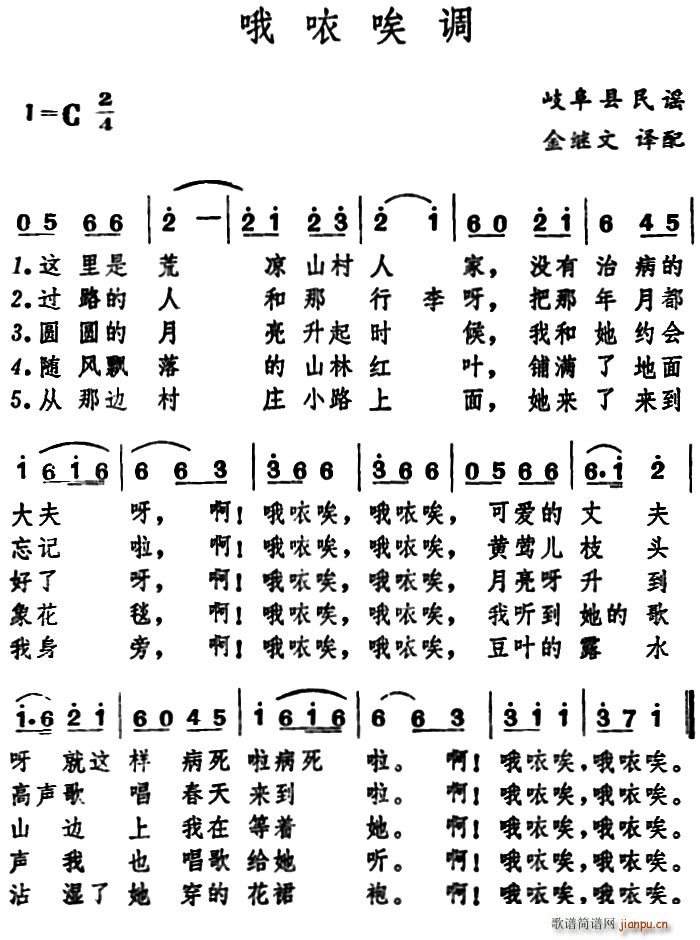 哦哝唉调
1=C 2/4
岐阜县民谣
金继文 译配
0 5 6 6 | 2 — | 2 1 2 3 | 2 1 | 6 0 2 1 | 6 4 5 |
1.这里是荒 凉山村人 家，没有治病的
2.过路的人 和那行李呀，把那年月都
3.圆圆的月 亮升起时 候，我和她约会
4.随风飘落 的山林红 叶，铺满了地面
5.从那边村 庄小路上 面，她来了来到
1 6 1 6 | 6 6 3 | 3 0 6 6 | 3 6 6 | 0 5 6 6 | 6. 1 2 |
大夫 呀，啊！哦哝唉，哦哝唉，可爱的丈夫
忘记 啦，啊！哦哝唉，哦哝唉，黄莺儿枝头
好了 呀，啊！哦哝唉，哦哝唉，月亮呀升到
象花 毯，啊！哦哝唉，哦哝唉，我听到她的歌
我身 旁，啊！哦哝唉，哦哝唉，豆叶的露水
1. 6 2 1 | 6 0 4 5 | 1 6 1 6 | 6 6 3 | 3 1 1 | 3 7 1 ‖
呀 就这样 病死啦病死 啦。啊！哦哝唉，哦哝唉。
高声歌 唱 春天来到 啦。啊！哦哝唉，哦哝唉。
山 边上我在等着 她。啊！哦哝唉，哦哝唉。
声我 也 唱歌给她 听。啊！哦哝唉，哦哝唉。
沾 湿了她 穿的花裙 袍。啊！哦哝唉，哦哝唉。
歌谱简谱网
jianpu.cn